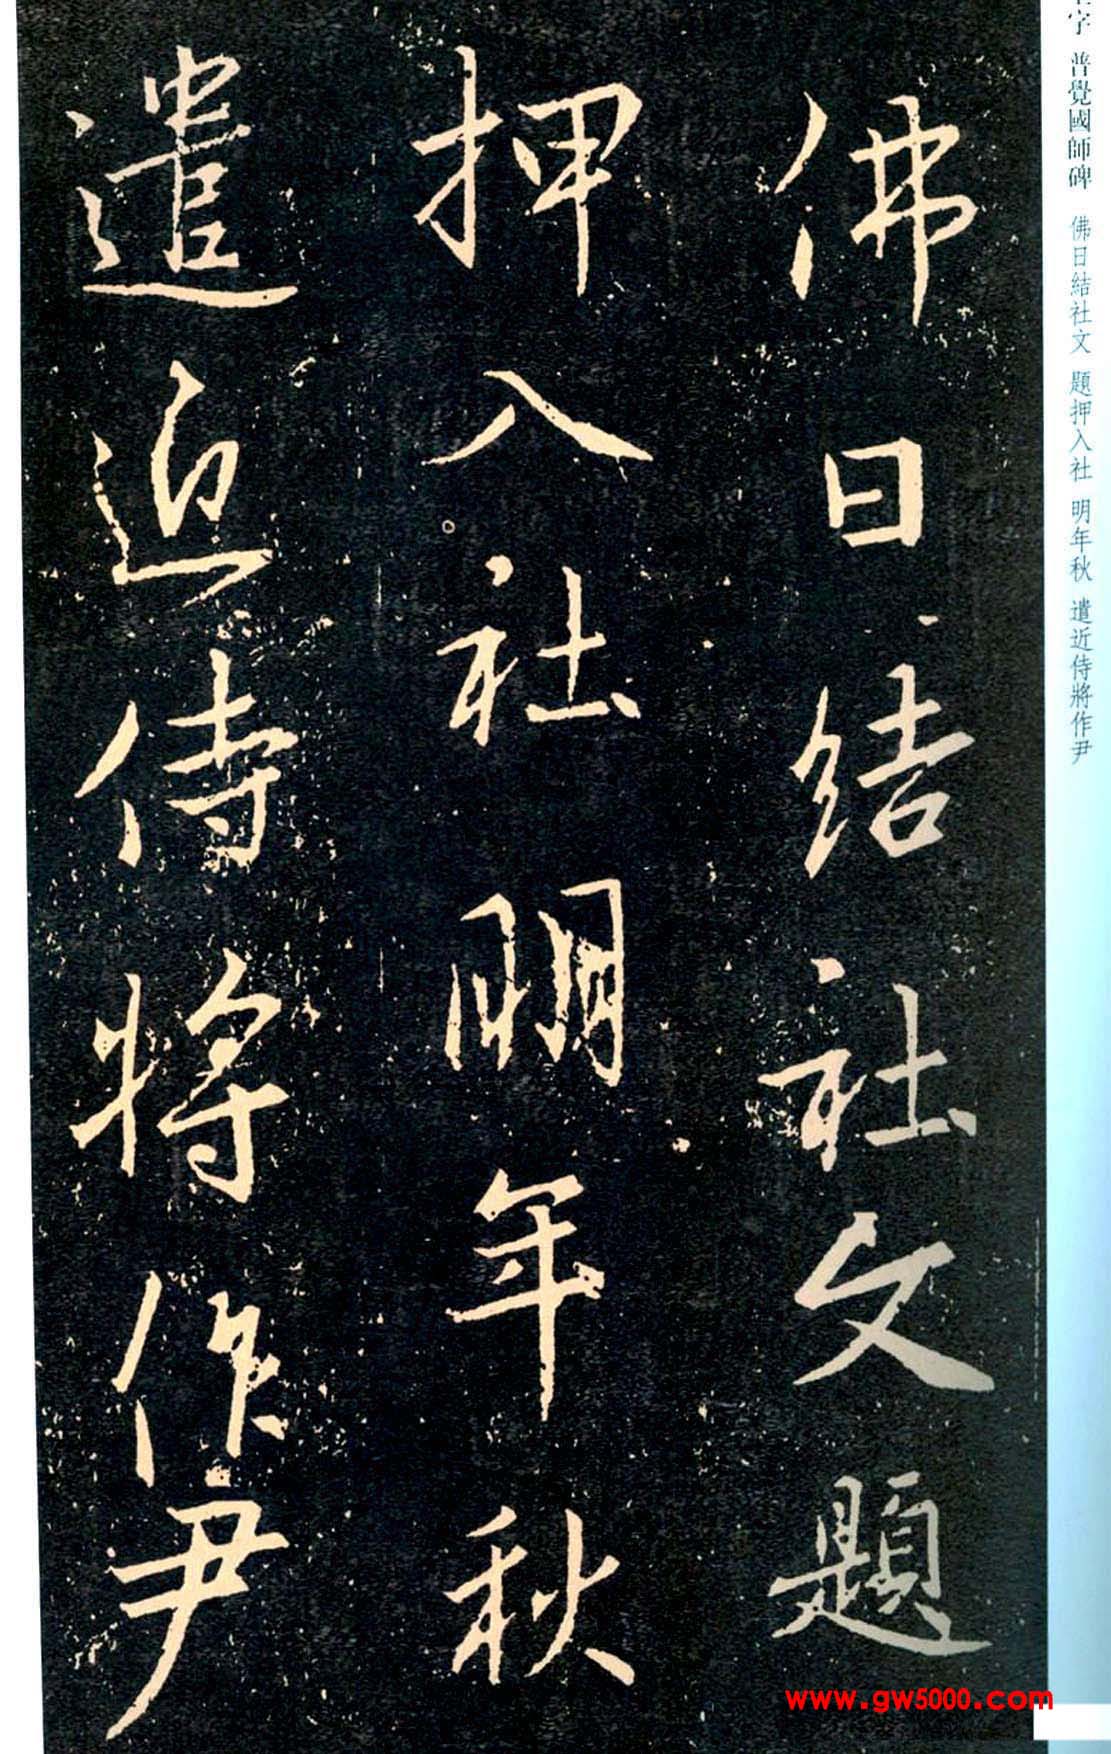 字 普覺國師碑 佛日結社文 題押入社 明年秋 遣近侍將作尹
佛日結社文題
押入社明年秋
遣近侍將作尹
www.gw5000.com